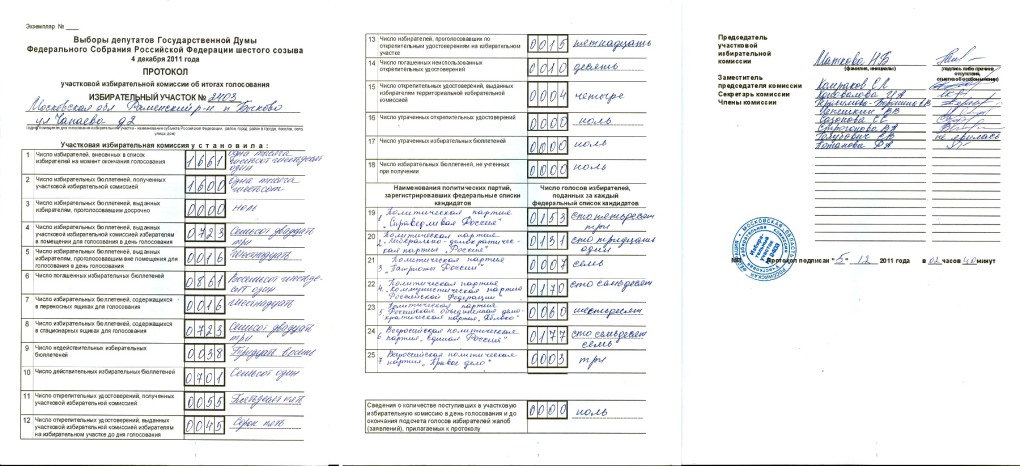 Экземпляр № ____
Выборы депутатов Государственной Думы
Федерального Собрания Российской Федерации шестого созыва
4 декабря 2011 года
ПРОТОКОЛ
участковой избирательной комиссии об итогах голосования
ИЗБИРАТЕЛЬНЫЙ УЧАСТОК № 2403
Московская обл Раменский р-н п Быково
ул Чапаева д2
Участковая избирательная комиссия у с т а н о в и л а :
1 Число избирателей, внесенных в список
избирателей на момент окончания голосования
1661 одна тысяча
шестьсот шестьдесят
один
2 Число избирательных бюллетеней, полученных
участковой избирательной комиссией
1600 одна тысяча
шестьсот
3 Число избирательных бюллетеней, выданных
избирателям, проголосовавшим досрочно
0000 ноль
4 Число избирательных бюллетеней, выданных
участковой избирательной комиссией избирателям
в помещении для голосования в день голосования
0723 Семьсот двадцать
три
5 Число избирательных бюллетеней, выданных
избирателям, проголосовавшим вне помещения для
голосования в день голосования
0016 шестнадцать
6 Число погашенных избирательных бюллетеней
0861 Восемьсот шестьде-
сят один
7 Число избирательных бюллетеней, содержащихся
в переносных ящиках для голосования
0016 шестнадцать
8 Число избирательных бюллетеней, содержащихся
в стационарных ящиках для голосования
0723 Семьсот двадцать
три
9 Число недействительных избирательных
бюллетеней
0038 Тридцать восемь
10 Число действительных избирательных бюллетеней
0701 Семьсот один
11 Число открепительных удостоверений, полученных
участковой избирательной комиссией
0055 Пятьдесят пять
12 Число открепительных удостоверений, выданных
участковой избирательной комиссией избирателям
на избирательном участке до дня голосования
0045 Сорок пять
1
13 Число избирателей, проголосовавших по
открепительным удостоверениям на избирательном
участке
0015 пятнадцать
14 Число погашенных неиспользованных
открепительных удостоверений
0010 десять
15 Число открепительных удостоверений, выданных
избирателям территориальной избирательной
комиссией
0004 четыре
16 Число утраченных открепительных удостоверений
0000 ноль
17 Число утраченных избирательных бюллетеней
0000 ноль
18 Число избирательных бюллетеней, не учтенных
при получении
0000 ноль
Наименования политических партий,
зарегистрировавших федеральные списки
кандидатов
Число голосов избирателей,
поданных за каждый
федеральный список кандидатов
19 Политическая партия
1 „Справедливая Россия“
0153 сто пятьдесят
три
20 Политическая партия
2 „Либерально-демократичес-
кая партия России“
0131 сто тридцать
один
21 Политическая партия
3 „Патриоты России“
0007 семь
22 Политическая партия
4. „Коммунистическая партия
Российской Федерации“
0170 сто семьдесят
23 Политическая партия
5 „Российская объединенная демо-
кратическая партия „Яблоко“
0060 шестьдесят
24 Всероссийская политическая
6 партия „Единая Россия“
0177 сто семьдесят
семь
25 Всероссийская политическая
7 партия „Правое дело“
0003 три
Сведения о количестве поступивших в участковую
избирательную комиссию в день голосования и до
окончания подсчета голосов избирателей жалоб
(заявлений), прилагаемых к протоколу
0000 ноль
1
Председатель
участковой
избирательной
комиссии
(фамилия, инициалы)
(подпись либо причина
отсутствия,
отметка об особом мнении)
Заместитель
председателя комиссии
Секретарь комиссии
Члены комиссии
Сазонова Е.С.
Потапова
МП Протокол подписан "5" 12 2011 года в 02 часов 40 минут
1